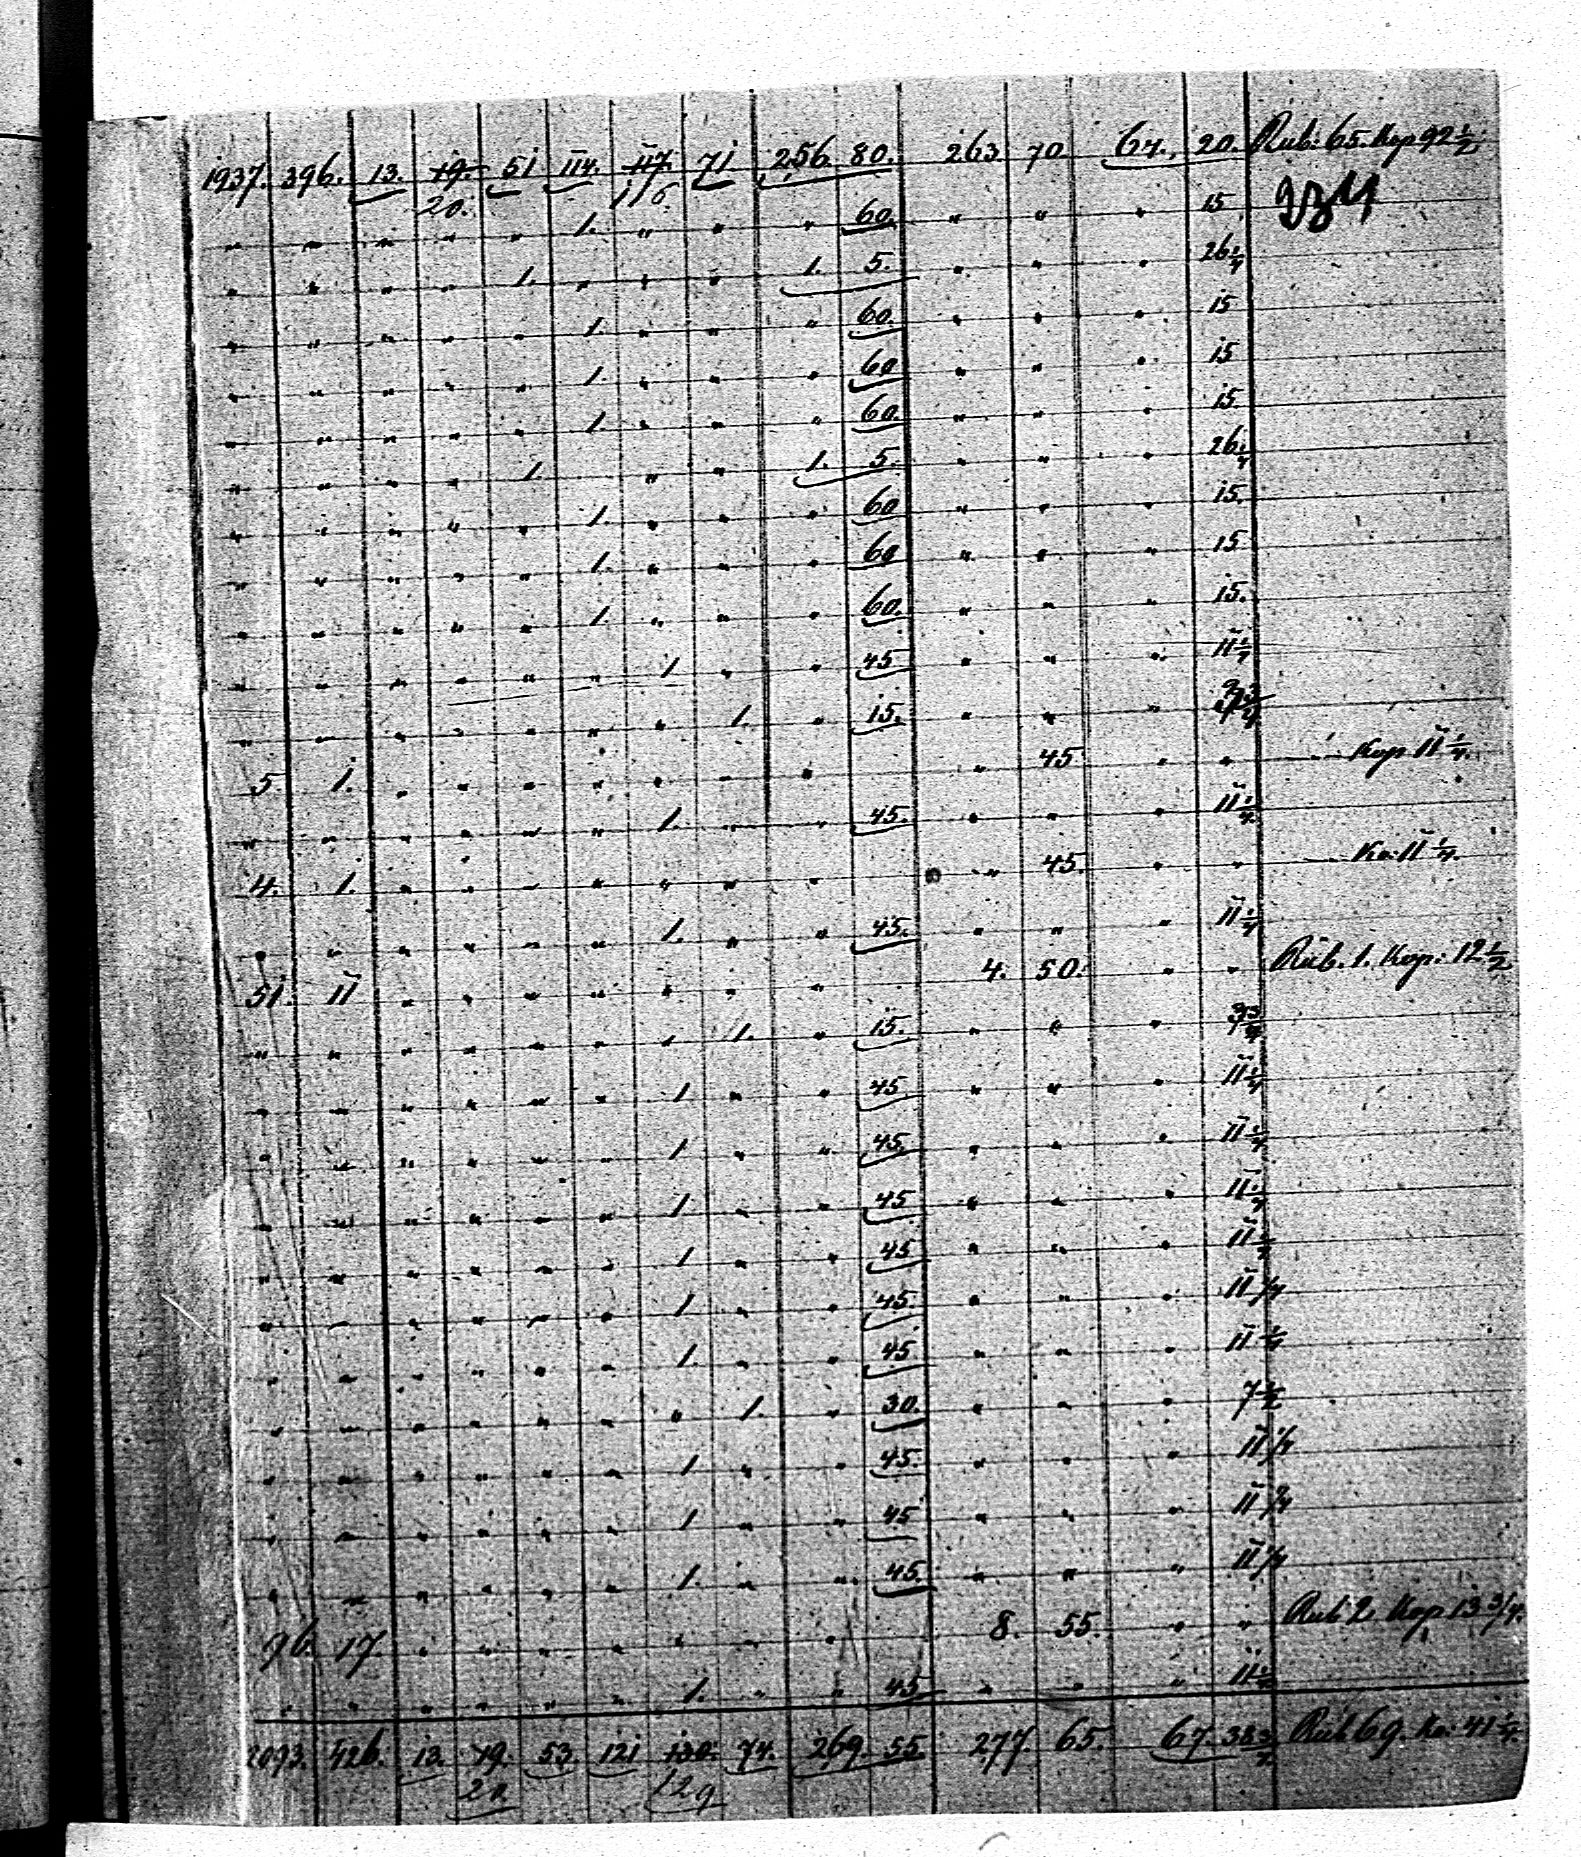 1937. 396. 13. 19. 51 114. 117. 71 256. 80. 263 70 64. 20. Rub: 65. Kop 92 1/2
20. 116.
" " " " " 1. " " " 60. " " " 15
" " " " 1. " " " 1. 5. " " " 26 1/4
" " " " " 1. " " " 60. " " " 15
" " " " " 1. " " " 60 " " " 15
" " " " " 1. " " " 60. " " " 15.
" " " " 1. " " 1. 5. " " " 26 1/4
" " " " " 1. " " " 60 " " " 15.
" " " " " 1. " " " 60 " " " 15
" " " " " 1. " " " 60. " " " 15.
" " " " " " 1 " " 45 " " " 11 1/4
" " " " " " " 1. " 15. " " " 3 3/4
5 1. " " " " " " " " 45 " " " Kop 11 1/4.
" " " " " " 1. " " 45. " " " 11 1/4
4. 1. " " " " " " " " 45. " " Ko: 11 1/4.
" " " " " " 1. " " 45. " " " 11 1/4
51. 11 " " " " " " " 4. 50. " " Rub. 1. Kop: 12 1/2
" " " " " " " 1. " 15. " " " 3 3/4
" " " " " " 1 " " 45 " " " 11 1/4
" " " " " " 1 " " 45. " " " 11 1/4
" " " " " " 1 " " 45 " " " 11 1/4
" " " " " " 1 " " 45 " " " 11 1/4
" " " " " " 1 " " 45. " " " 11 1/4
" " " " " " 1. " " 45 " " " 11 1/4
" " " " " " " 1. " 30. " " " 7 1/2
" " " " " " 1 " " 45. " " " 11 1/4
" " " " " " 1 " " 45 " " " 11 1/4
" " " " " " 1. " " 45. " " " 11 1/4
96. 17. " " " " " " " 8. 55. " " Rub 2. Kop 13 3/4.
" " " " " " 1. " " 45 " " " 11 1/4
2093. 426. 13. 19. 53. 121 130. 74. 269. 55. 277. 65. 67. 38 3/4 Rub 69. Ko: 41 1/4.
20. 129